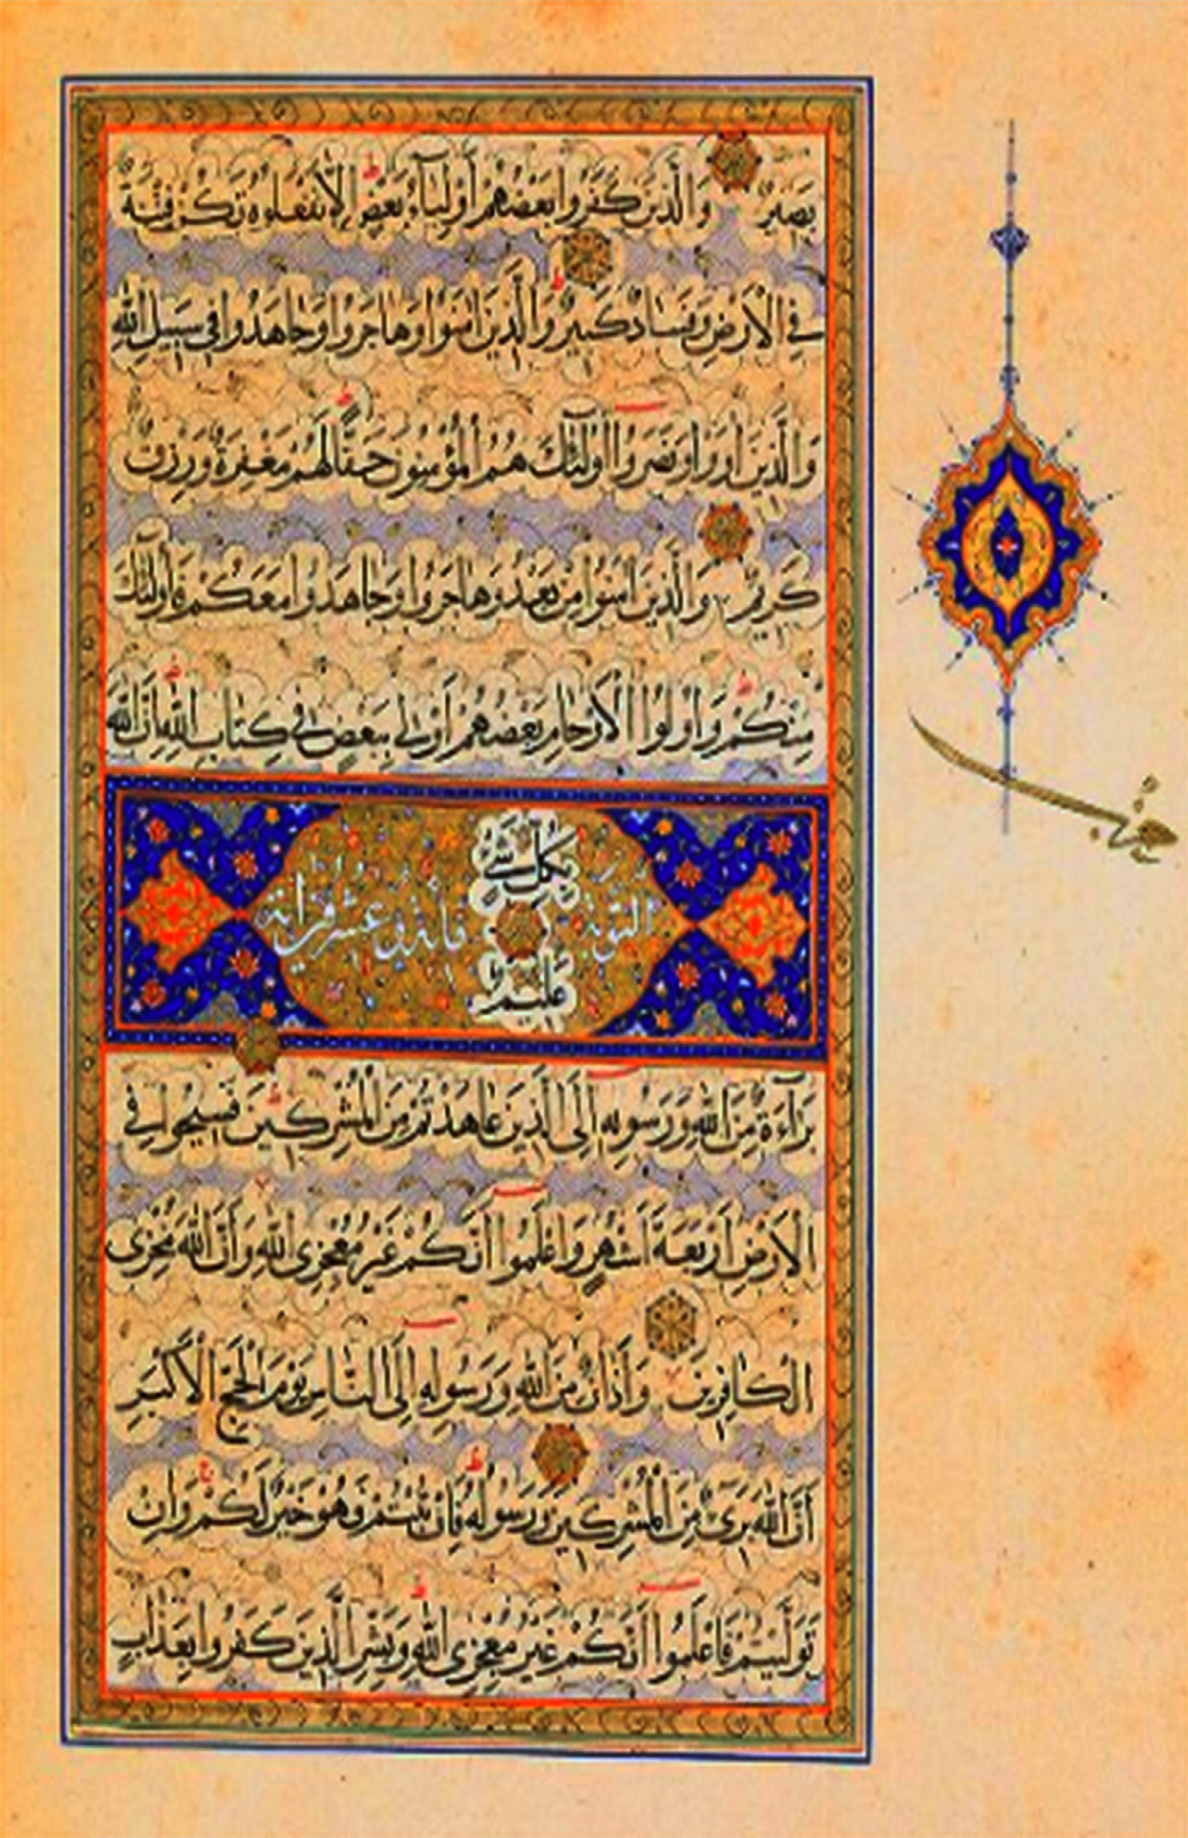 بَصِيرٌ وَالَّذِينَ كَفَرُوا بَعْضُهُمْ أَوْلِيَاءُ بَعْضٍ إِلَّا تَفْعَلُوهُ تَكُنْ فِتْنَةٌ
فِي الْأَرْضِ وَفَسَادٌ كَبِيرٌ وَالَّذِينَ آمَنُوا وَهَاجَرُوا وَجَاهَدُوا فِي سَبِيلِ اللَّهِ
وَالَّذِينَ آوَوْا وَنَصَرُوا أُولَٰئِكَ هُمُ الْمُؤْمِنُونَ حَقًّا لَهُمْ مَغْفِرَةٌ وَرِزْقٌ
كَرِيمٌ وَالَّذِينَ آمَنُوا مِنْ بَعْدُ وَهَاجَرُوا وَجَاهَدُوا مَعَكُمْ فَأُولَٰئِكَ
مِنْكُمْ وَأُولُوا الْأَرْحَامِ بَعْضُهُمْ أَوْلَى بِبَعْضٍ فِي كِتَابِ اللَّهِ إِنَّ اللَّهَ
بِكُلِّ شَيْءٍ
التوبة
عَلِيمٌ
بَرَاءَةٌ مِنَ اللَّهِ وَرَسُولِهِ إِلَى الَّذِينَ عَاهَدْتُمْ مِنَ الْمُشْرِكِينَ فَسِيحُوا فِي
الْأَرْضِ أَرْبَعَةَ أَشْهُرٍ وَاعْلَمُوا أَنَّكُمْ غَيْرُ مُعْجِزِي اللَّهِ وَأَنَّ اللَّهَ مُخْزِي
الْكَافِرِينَ وَأَذَانٌ مِنَ اللَّهِ وَرَسُولِهِ إِلَى النَّاسِ يَوْمَ الْحَجِّ الْأَكْبَرِ
أَنَّ اللَّهَ بَرِيءٌ مِنَ الْمُشْرِكِينَ وَرَسُولُهُ فَإِنْ تُبْتُمْ فَهُوَ خَيْرٌ لَكُمْ وَإِنْ
تَوَلَّيْتُمْ فَاعْلَمُوا أَنَّكُمْ غَيْرُ مُعْجِزِي اللَّهِ وَبَشِّرِ الَّذِينَ كَفَرُوا بِعَذَابٍ